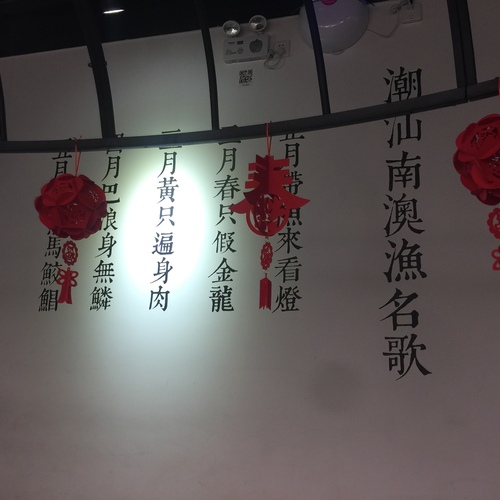 潮汕南澳漁名歌
正月帶漁來看燈
二月春只假金龍
三月黃只遍身肉
四月巴浪身無鱗
五月馬鮫鯧